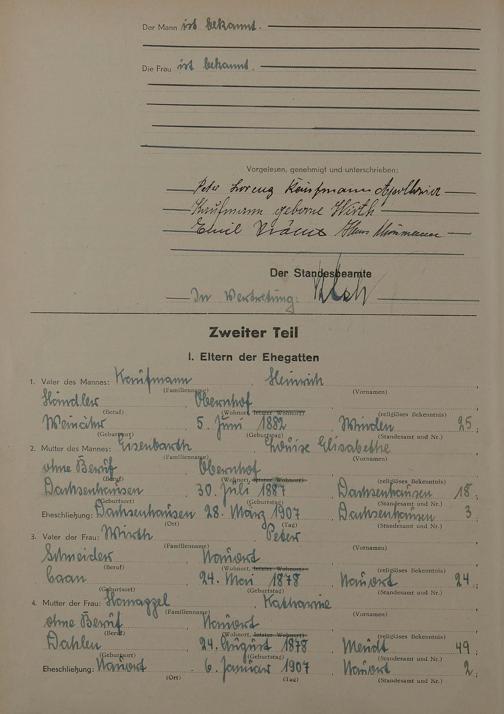 Der Mann ist bekannt.
Die Frau ist bekannt.
Vorgelesen, genehmigt und unterschrieben:
Peter Lorenz Kaufmann Apollonia
Kaufmann geborne Wirth
Emil Hans
Der Standesbeamte
In Vertretung:
Zweiter Teil
I. Eltern der Ehegatten
1. Vater des Mannes: Kaufmann Heinrich
(Familienname) (Vornamen)
Händler Obernhof
(Beruf) (Wohnort, letzter Wohnort) (religiöses Bekenntnis)
Weinähr 5. Juni 1882 Winden 25;
(Geburtsort) (Geburtstag) (Standesamt und Nr.)
2. Mutter des Mannes: Eisenbarth Louise Elisabethe
(Familienname) (Vornamen)
ohne Beruf Obernhof
(Beruf) (Wohnort, letzter Wohnort) (religiöses Bekenntnis)
Dachsenhausen 30. Juli 1887 Dachsenhausen 18;
(Geburtsort) (Geburtstag) (Standesamt und Nr.)
Eheschließung: Dachsenhausen 28. März 1907 Dachsenhausen 3.
(Ort) (Tag) (Standesamt und Nr.)
3. Vater der Frau: Wirth Peter
(Familienname) (Vornamen)
Schneider Nauort
(Beruf) (Wohnort, letzter Wohnort) (religiöses Bekenntnis)
Caan 24. Mai 1878 Nauort 24;
(Geburtsort) (Geburtstag) (Standesamt und Nr.)
4. Mutter der Frau: Katharine
(Familienname) (Vornamen)
ohne Beruf Nauort
(Beruf) (Wohnort, letzter Wohnort) (religiöses Bekenntnis)
Dahlen 24. August 1878 Meudt 49;
(Geburtsort) (Geburtstag) (Standesamt und Nr.)
Eheschließung: Nauort 6. Januar 1907 Nauort 2;
(Ort) (Tag) (Standesamt und Nr.)